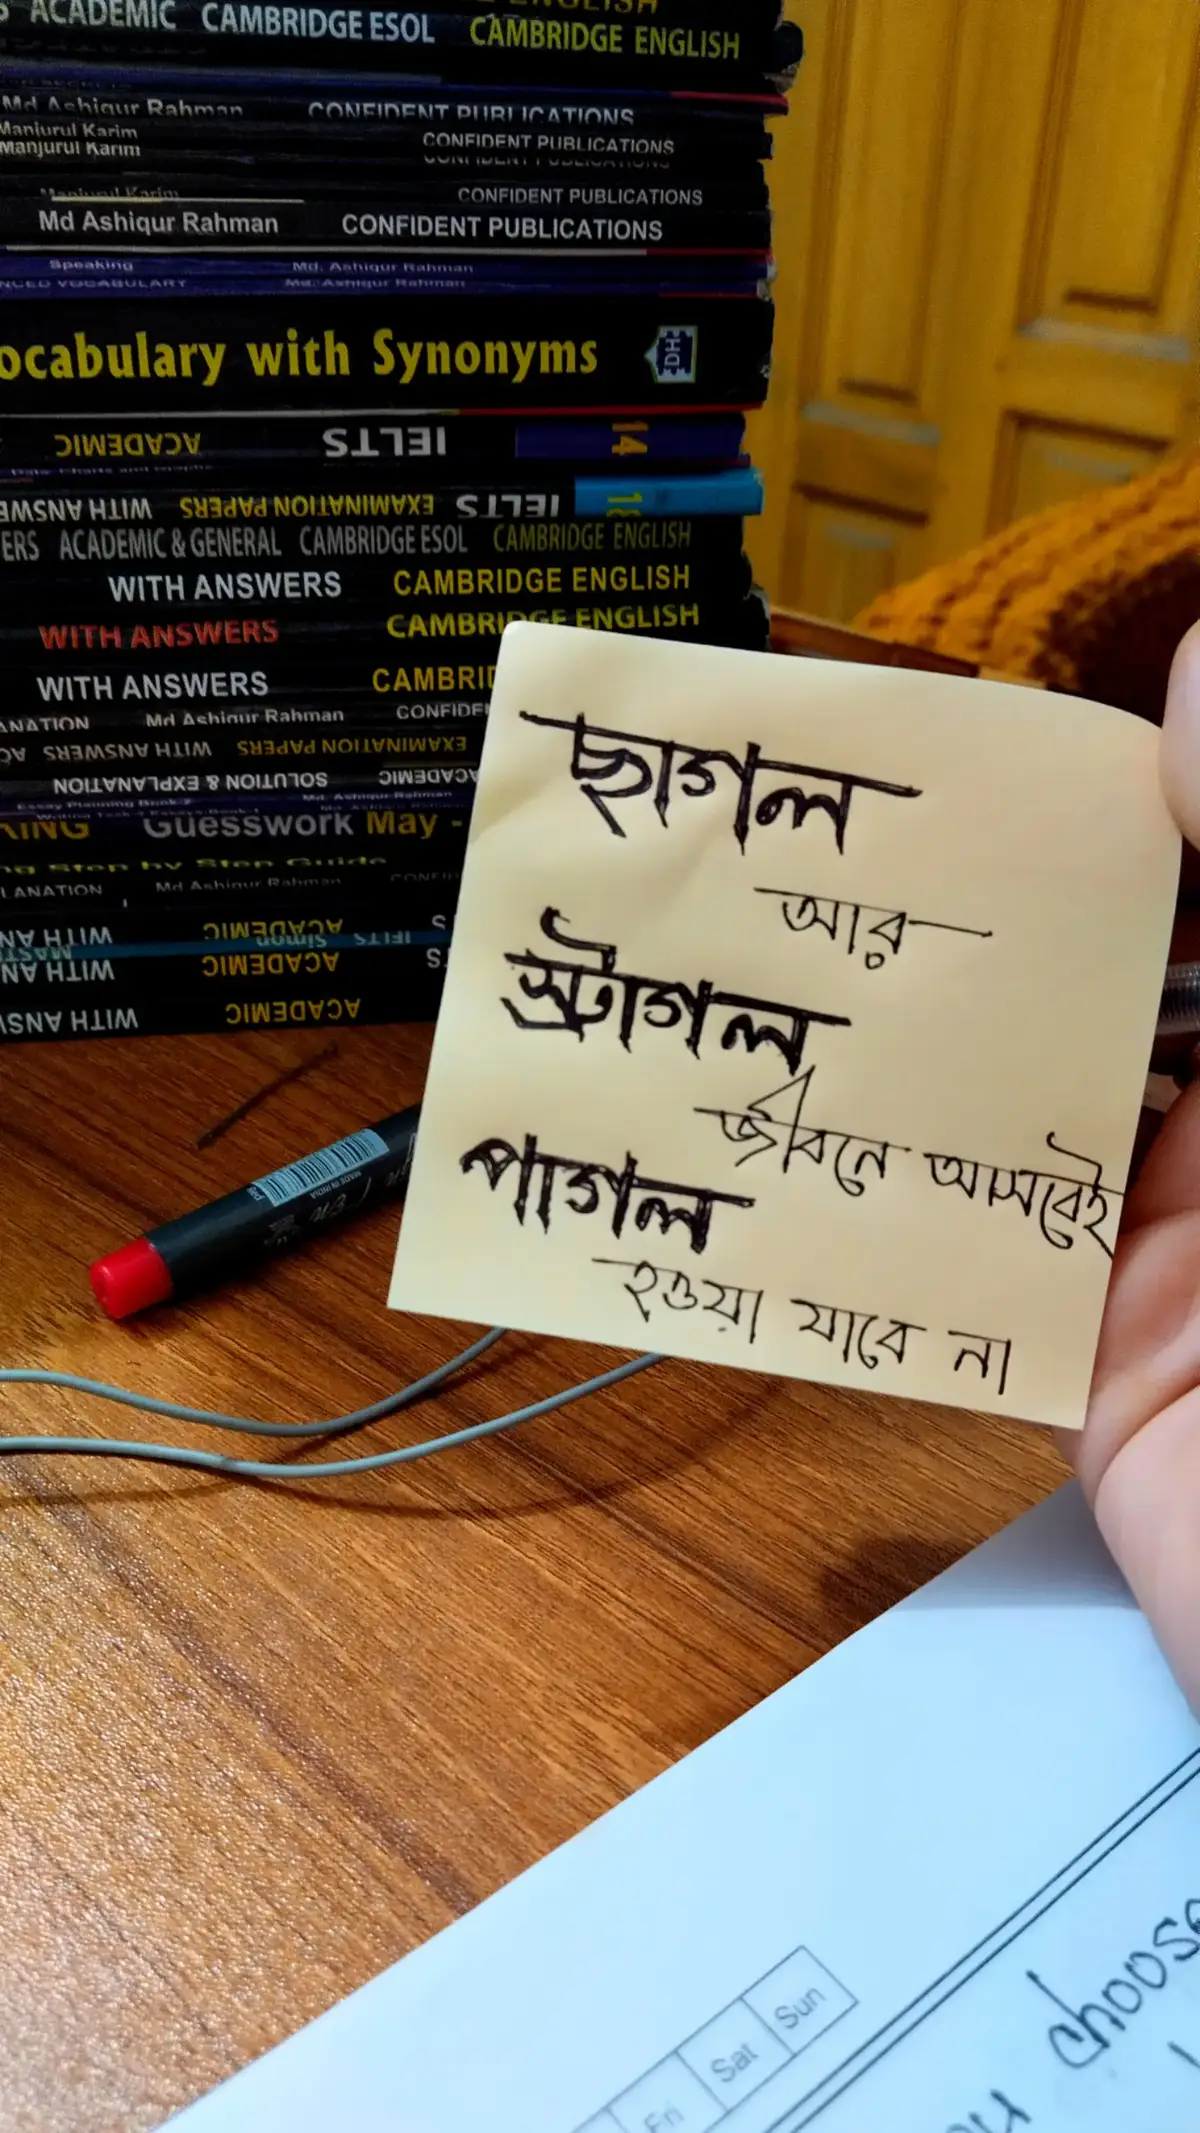 ACADEMIC CAMBRIDGE ESOL CAMBRIDGE ENGLISH
Md Ashiqur Rahman CONFIDENT PUBLICATIONS
Manjurul Karim CONFIDENT PUBLICATIONS
Manjurul Karim
Manjurul Karim CONFIDENT PUBLICATIONS
Md Ashiqur Rahman CONFIDENT PUBLICATIONS
Speaking Md. Ashiqur Rahman
VOCABULARY Md. Ashiqur Rahman
ocabulary with Synonyms DH
ACADEMIC IELTS 14
WITH ANSWE EXAMINATION PAPERS IELTS
ERS ACADEMIC & GENERAL CAMBRIDGE ESOL CAMBRIDGE ENGLISH
WITH ANSWERS CAMBRIDGE ENGLISH
WITH ANSWERS CAMBRIDGE ENGLISH
WITH ANSWERS CAMBRID
ANATION Md Ashiqur Rahman CONFIDE
WITH ANSWERS EXAMINATION PAPERS
SOLUTION & EXPLANATION ACADEMIC
Essay Planning Book Md. Ashiqur Rahman
KING Guesswork May -
Step by Step Guide
LANATION Md Ashiqur Rahman
WITH AN ACADEMIC
IELTS Simon
WITH AN ACADEMIC
WITH ANS ACADEMIC
ছাগল
আর
স্ট্রাগল
জীবনে আসবেই
পাগল
হওয়া যাবে না
MADE IN INDIA
Fri Sat Sun
choose